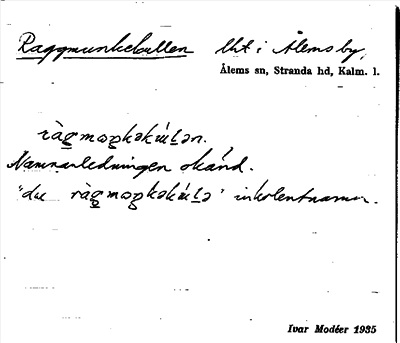 Raggmunkekullen lht i Ålems by,
Ålems sn, Stranda hd, Kalm. l.
ràg̲mωŋkəkúl̲ən.
Namnanledningen okänd.
"du ràg̲mωŋkəkúl̲ə" inkolentnamn.
Ivar Modéer 1935